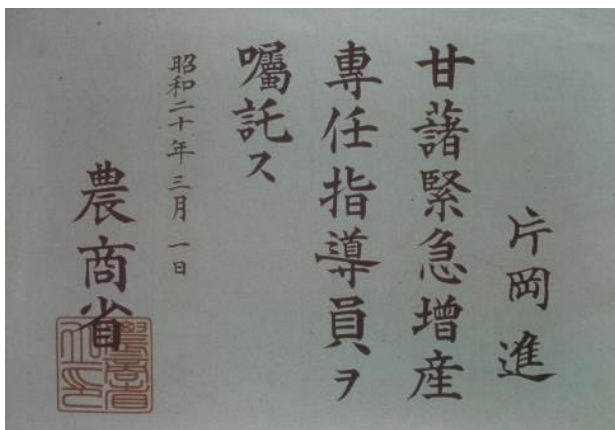 片岡進
甘藷緊急増産
專任指導員ヲ
囑託ス
昭和二十年三月一日
農商省